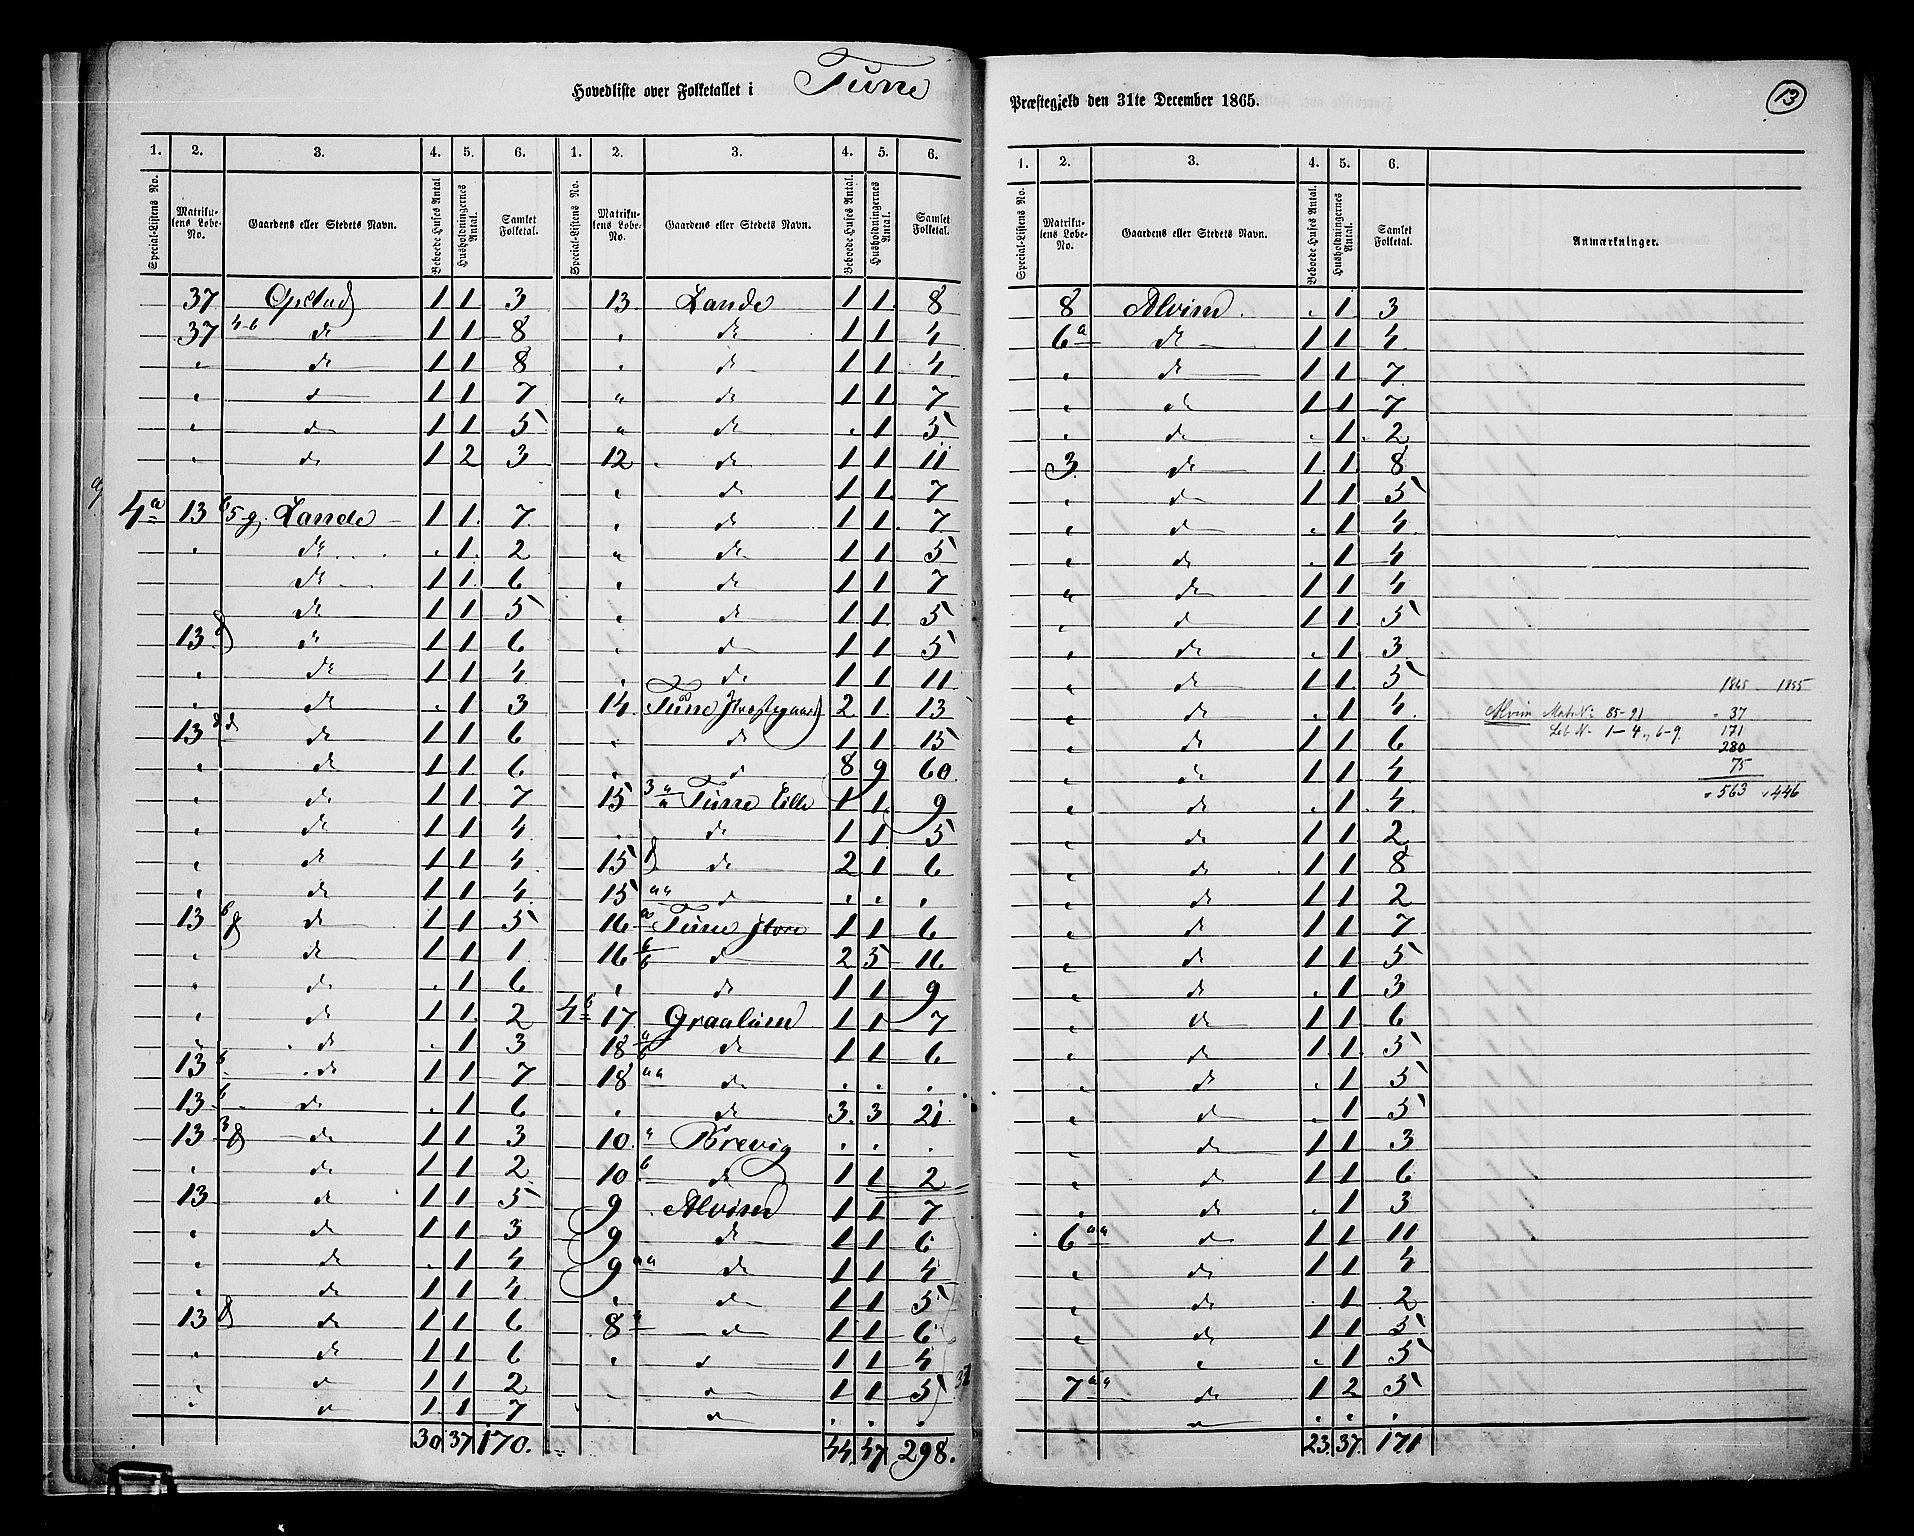 Hovedliste over Folketallet i Tune
Præstegjeld den 31te December 1865.
13
1. 2. 3. 4. 5. 6. 1. 2. 3. 4. 5. 6.
Special-Listens No. Matrikulens Løbe-No. Gaardens eller Stedets Navn. Beboede Huses Antal Husholdningernes Antal. Samlet Folketal. Special-Listens No. Matrikulens Løbe-No. Gaardens eller Stedets Navn. Beboede Huses Antal. Husholdningernes Antal. Samlet Folketal.
37 Opstad 1 1 3 13 Lande 1 1 8
37 4-6 do 1 1 8 " do 1 1 4
" do 1 1 8 " do 1 1 4
" do 1 1 7 " do 1 1 7
" do 1 1 5 " do . 1 5
" do 1 2 3 12 do 1 1 11
" do 1 1 7
4a 13 Lande 1 1 7 " do 1 1 7
" do . 1 2 " do 1 1 5
do 1 1 6 " do 1 1 7
do 1 1 5 " do 1 1 5
13 do 1 1 6 " do 1 1 5
" do 1 1 4 " do 1 1 11
" do . 1 3 14 Tune Præstegaard 2 1 13
13 do 1 1 6 " do 1 1 15
" do 1 1 6 " d 8 9 60
" do 1 1 7 15 Tune Lille 1 1 9
" do 1 1 4 " do 1 1 5
" do 1 1 4 15 do 2 1 6
" do 1 1 4 15 aa d . . .
13 do 1 1 5 16 a Tune Store 1 1 6
" do 1 1 1 16 b d 2 5 16
" do . 1 6 " do 1 1 9
" do 1 1 2 4b 17 Graalum 1 1 7
" do . 1 3 18 do 1 1 6
13 b do 1 1 7 18 aa do . . .
13 b do . 1 6 " do 3 3 21
13 do 1 1 3 10 a Brevig . . .
" do 1 1 2 10 b do 1 1 2
13 do 1 1 5 9 Alvim 1 1 7
" do 1 1 3 9 do 1 1 6
" do . 1 4 9 aa do 1 1 4
" do 1 1 4 " do 1 1 5
13 do 1 1 6 8 a do 1 1 6
" do 1 1 6 " d 1 1 4
" d 1 1 2 " d 1 1 5 37
" d 1 1 7 d . . .
30 37 170. 44 47 298.
1. 2. 3. 4. 5. 6.
Special-Listens No. Matrikulens Løbe-No. Gaardens eller Stedets Navn. Beboede Huses Antal. Husholdningernes Antal. Samlet Folketal. Anmærkninger.
8 Alvim . 1 3
6a do 1 1 4
" do 1 1 7
" do 1 1 7
" do . 1 2
3 do 1 1 8
" do 1 1 5
" do . 1 4
" do . 1 4
" do 1 1 4
" do 1 1 5
" do . 1 3
" do 1 1 5
1865 1855
" do . 1 4
Alvim Matr No 85-91 " 37
" do 1 1 6
Løb No 1-4, 6-9 171
280
" do 1 1 4
75
" do . 1 4
" 563 " 446
" do 1 1 2
" do 1 1 8
" do 1 1 2
" do 1 1 7
" do 1 1 5
" do . 1 3
" do 1 1 6
" do 1 1 5
" do . 1 5
" do . 1 5
" do 1 1 3
" do 1 1 6
" do . 1 3
6 aa do 1 1 11
" do 1 1 4
" do . 1 2
" do 1 1 5
" " . 1 5
7 aa do 1 2 5
" . . .
23 37 171